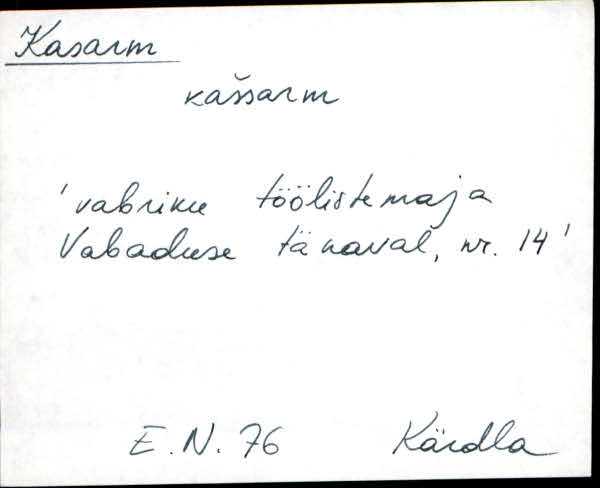 Kasarm
kašsarm
'vabriku töölistemaja
Vabaduse tänaval, nr. 14'
E.N. 76 Kärdla